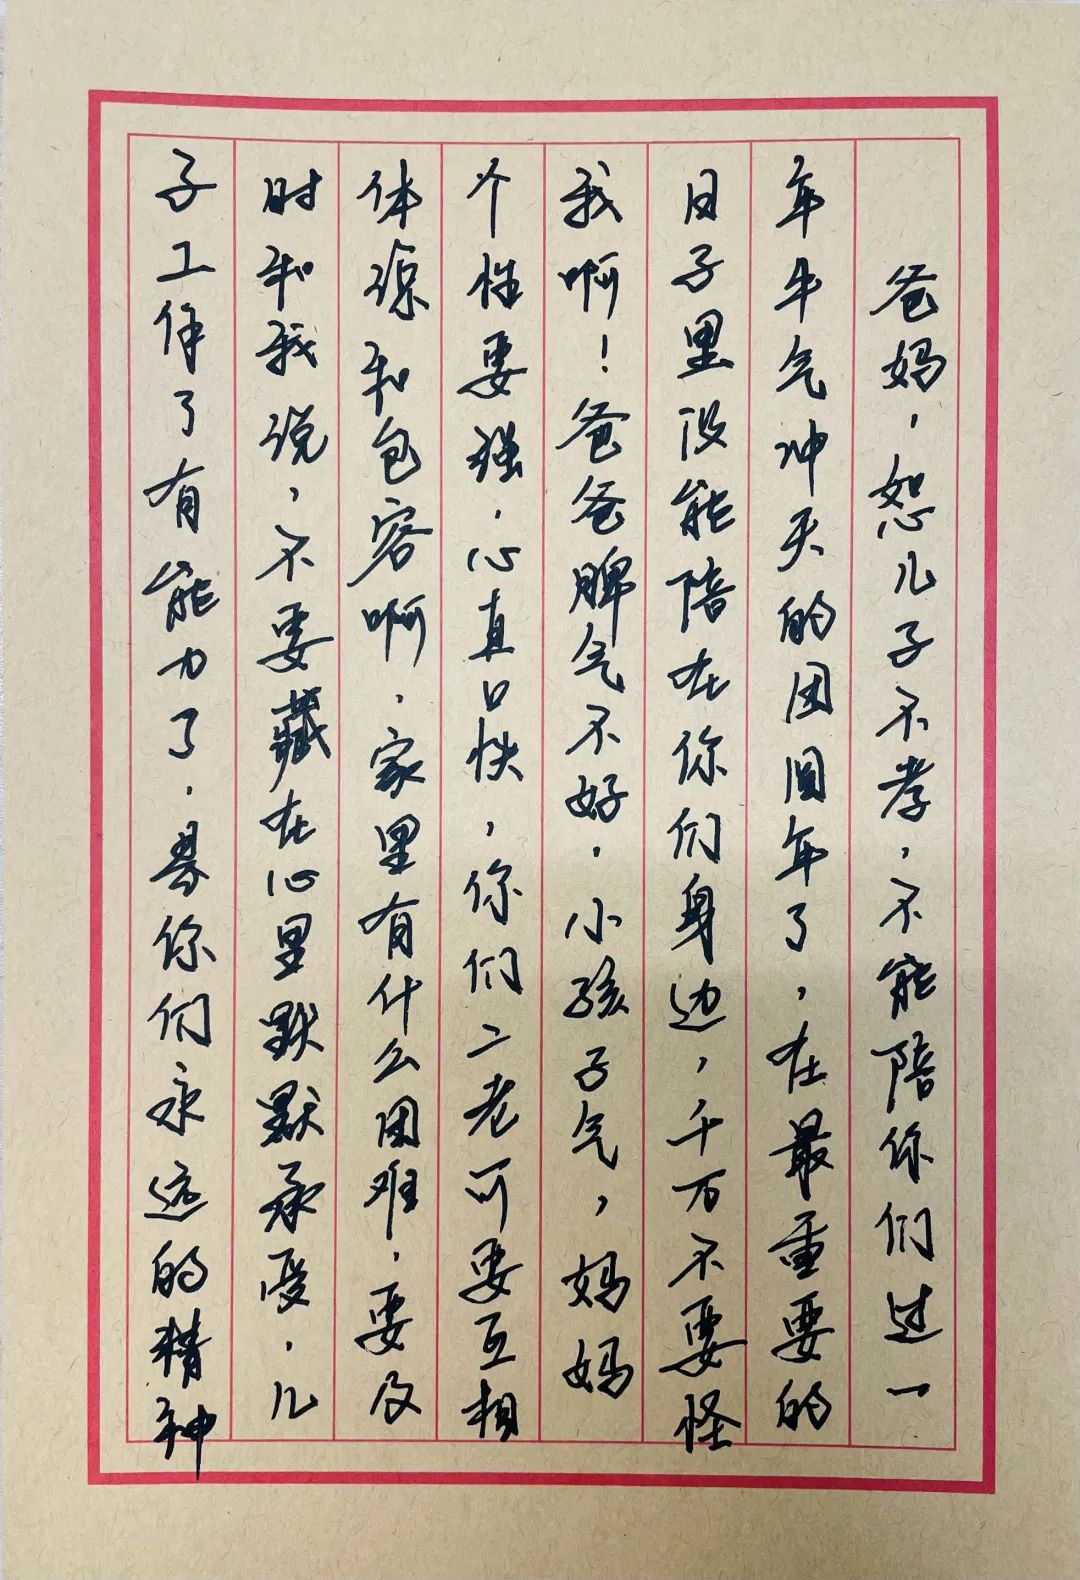 爸妈，恕儿子不孝，不能陪你们过一
年牛气冲天的团圆年了，在最重要的
日子里没能陪在你们身边，千万不要怪
我啊！爸爸脾气不好，小孩子气，妈妈
个性要强，心直口快，你们二老可要互相
体谅和包容啊，家里有什么困难，要及
时和我说，不要藏在心里默默承受，儿
子工作了有能力了，是你们永远的精神